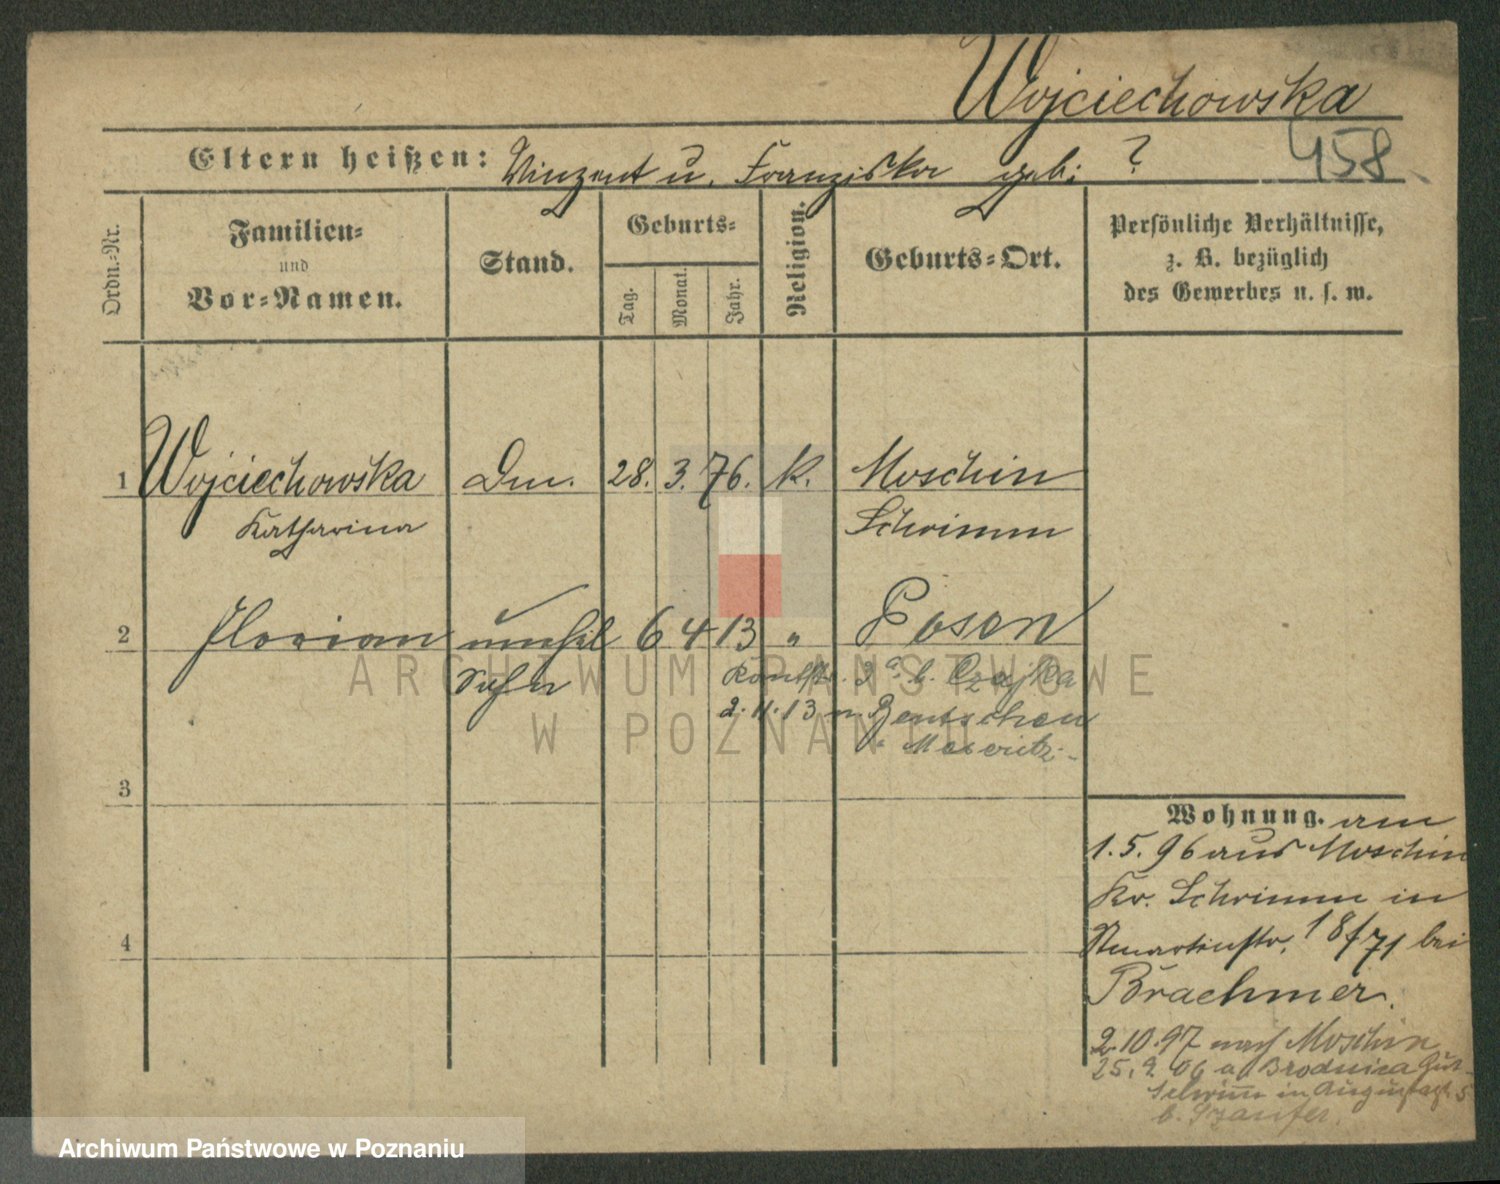 Wojciechowska
Eltern heißen: Vinzent u. Franziska geb: ?
458
Ordn.-Nr.
Familien-
und
Vor-Namen.
Stand.
Geburts-
Tag.
Monat.
Jahr.
Religion.
Geburts-Ort.
Persönliche Verhältnisse,
z. B. bezüglich
des Gewerbes u. s. w.
1 Wojciechowska Dm. 28. 3. 76. k. Moschin
Katharina Schrimm
2 Florian unehel 6 4 13 " Posen
Sohn
b. Czajka
2. 11. 13 n. Bentschen
Meseritz
3
4
Wohnung. am
1. 5. 96 aus Moschin
Kr. Schrimm in
Stmartinstr. 18/71 bei
Brachmer.
2.10.97 nach Moschin
25. 9. 06 a Brodnica Gut
Schrim in Augustastr. 5
b.
ARCHIWUM PAŃSTWOWE
W POZNANIU
Archiwum Państwowe w Poznaniu